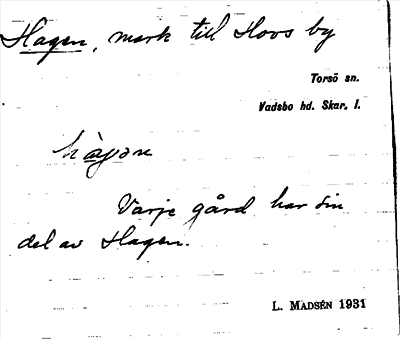 Hagen, mark till Hovs by
Torsö sn.
Vadsbo hd. Skar. l.
hàgən
Varje gård har sin
del av Hagen.
L. MADSÉN 1931